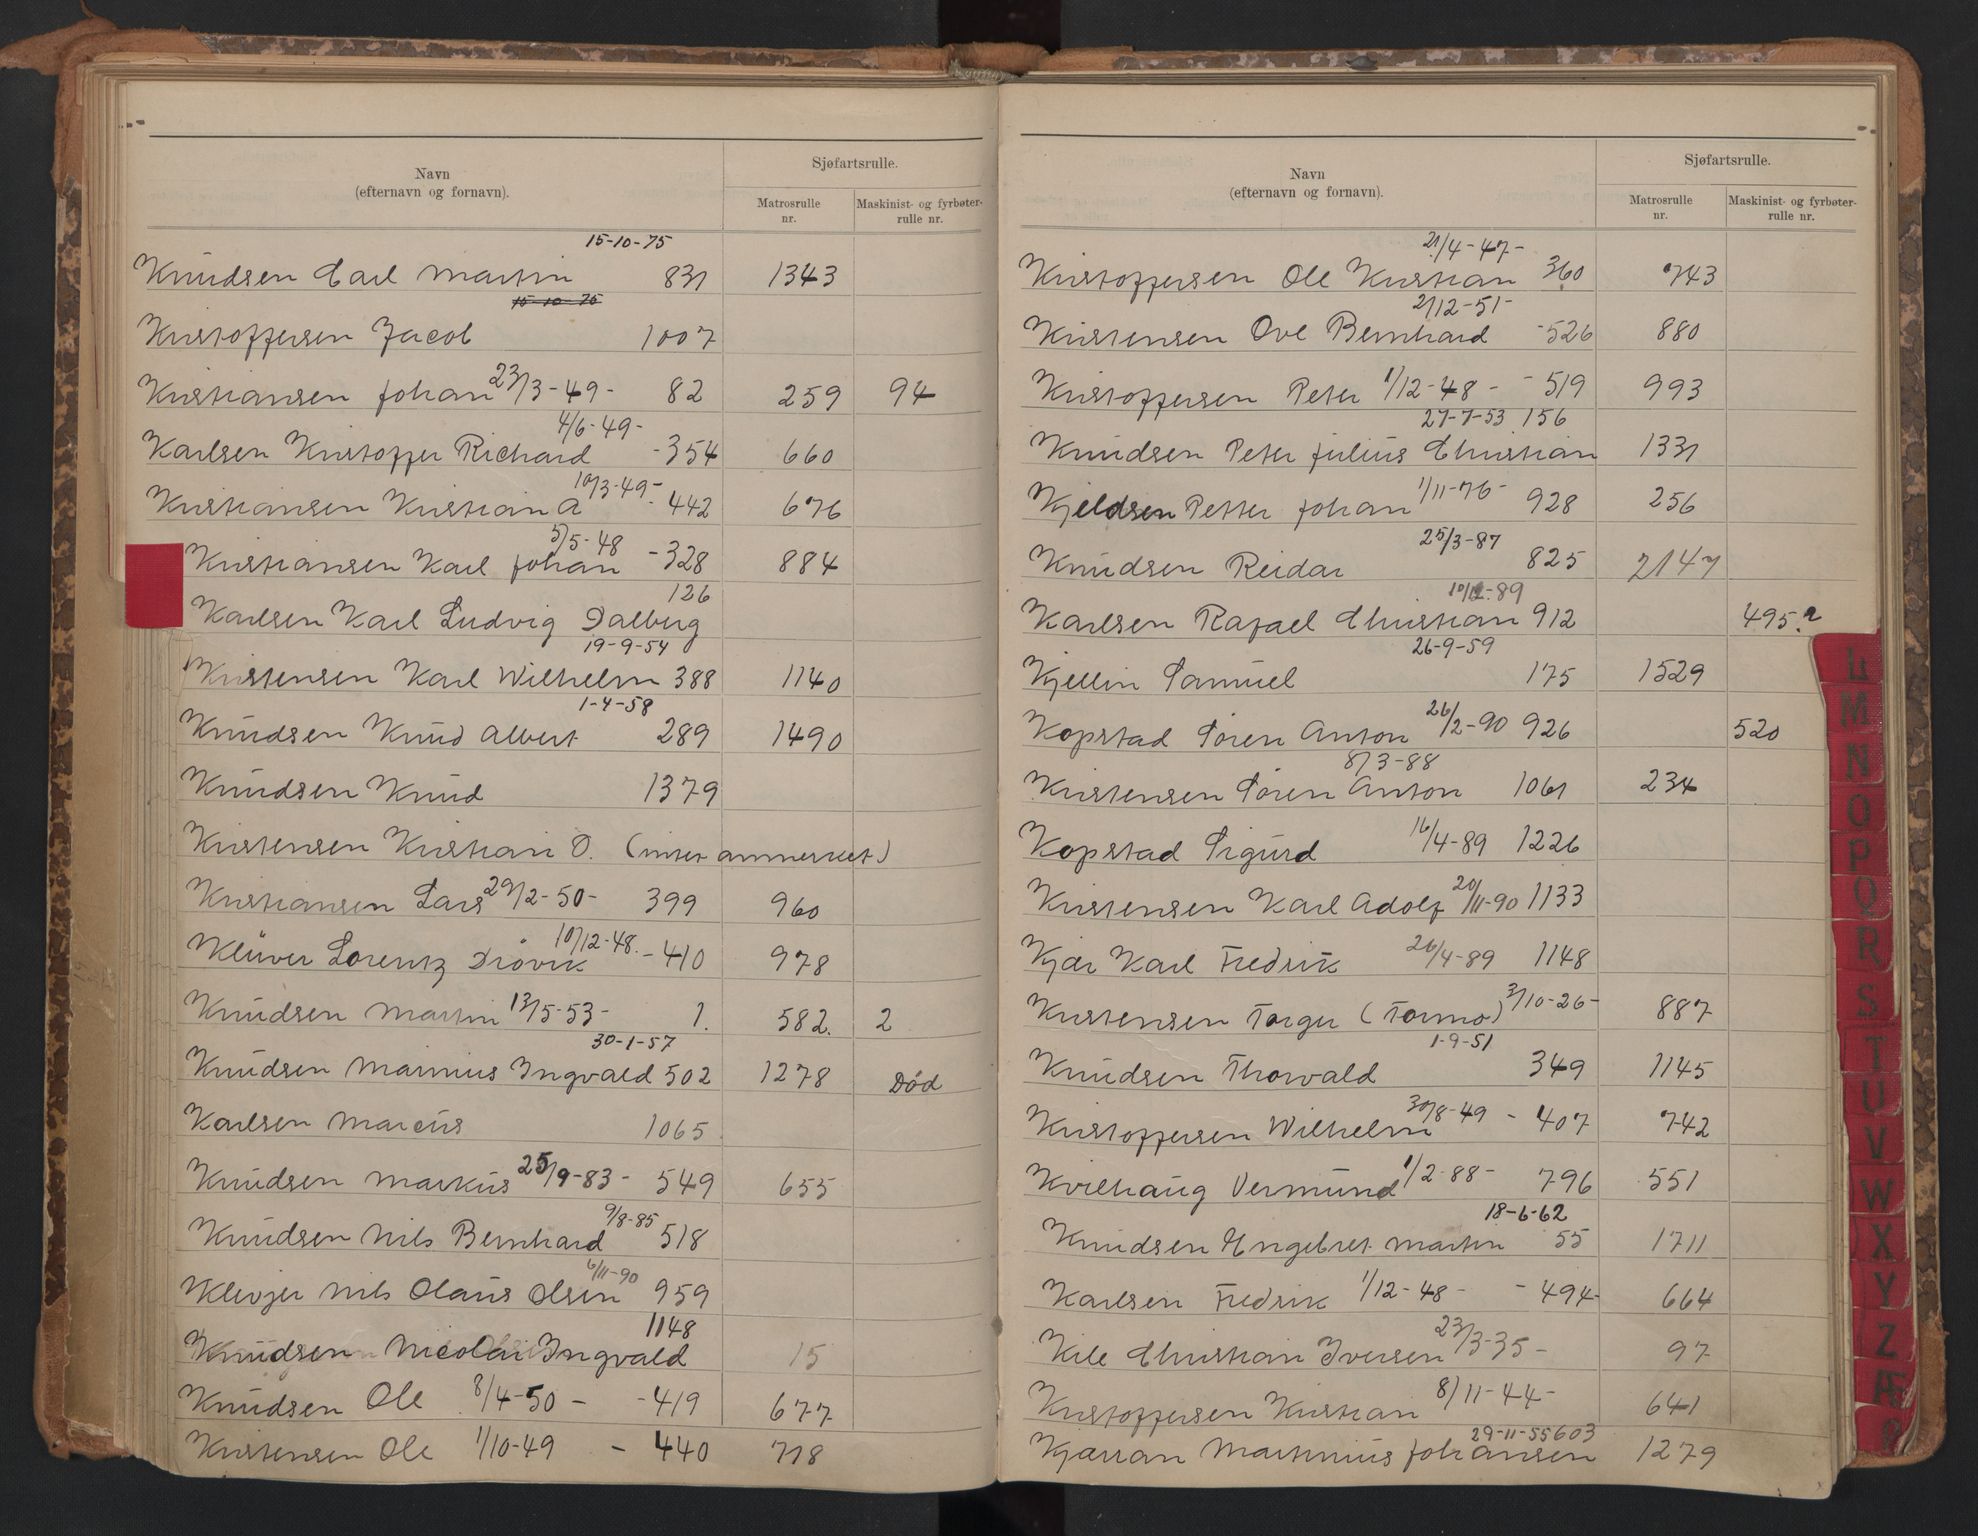 Navn
(efternavn og fornavn).
Sjøfartsrulle.
Matrosrulle
nr.
Maskinist- og fyrbøter-
rulle nr.
15-10-75
Knudsen Carl Martin 831 1343
15-10-75
Kristoffersen Jacob 1007
Kristiansen Johan 23/3-49- 82 259 94
4/6-49-
Karlsen Kristoffer Richard -354 660
10/3-49-
Kristiansen Kristian A -442 676
5/5-48
Kristiansen Karl Johan -328 884
126
Karlsen Karl Ludvig Dalberg
19-9-54
Kristensen Karl Wilhelm 388 1140
1-4-58
Knudsen Knud Albert 289 1490
Knudsen Knud 1379
Kristensen Kristian O. (intet anmerket)
Kristiansen Lars 29/2-50- 399 960
10/12-48.
Klüver Lorentz Diövik -410 978
Knudsen Martin 13/5-53- 1. 582. 2
30-1-57
Knudsen Marinius Ingvald 502 1278 Død
Karlsen Marcus 1065
Knudsen Markus 25/9-83- 549 655
9/8-85
Knudsen Nils Bernhard 518
6/11-90
Klevjer Nils Olaus Olsen 959
1148
Knudsen Nicolai Ingvald 15
Knudsen Ole 8/4-50 - -419 677
Kristensen Ole 1/10-49 - 440 718
Navn
(efternavn og fornavn).
Sjøfartsrulle.
Matrosrulle
nr.
Maskinist- og fyrbøter-
rulle nr.
21/4-47-
Kristoffersen Ole Kristian 360 743
2/12-51-
Kristensen Ove Bernhard -526 880
Kristoffersen Peter 1/12-48- -519 993
27-7-53 156
Knudsen Peter Julius Christian 1331
Kjeldsen Petter Johan 1/11-76- 928 256
25/3-87
Knudsen Reidar 825 2147
10/12-89
Karlsen Rafael Christian 912 495?
26-9-59
Kjellin Samuel 175 1529
Kopstad Sören Anton 26/2-90 926 520
8/3-88
Kristensen Sören Anton 1061 234
Kopstad Sigurd 16/4-89 1226
Kristensen Karl Adolf 20/11-90 1133
Kjær Karl Fredrik 26/4-89 1148
Kristensen Torger (Tormo) 3/10-26- 887
1-9-51
Knudsen Thorvald 349 1145
Kristoffersen Wilhelm 30/8-49 - 407 742
Kvilhaug Vermund 1/2-88- 796 551
18-6-62
Knudsen Engebret Martin 55 1711
Karlsen Fredrik 1/12-48- -494- 664
Kile Christian Iversen 23/3-35- 97
Kristoffersen Kristian 8/11-44- 641
29-11-55 603
Kjærran Martinius Johansen 1279
L
M
N
O
P
Q
R
S
T
U
V
W
X
Y
Z
Æ
Ø